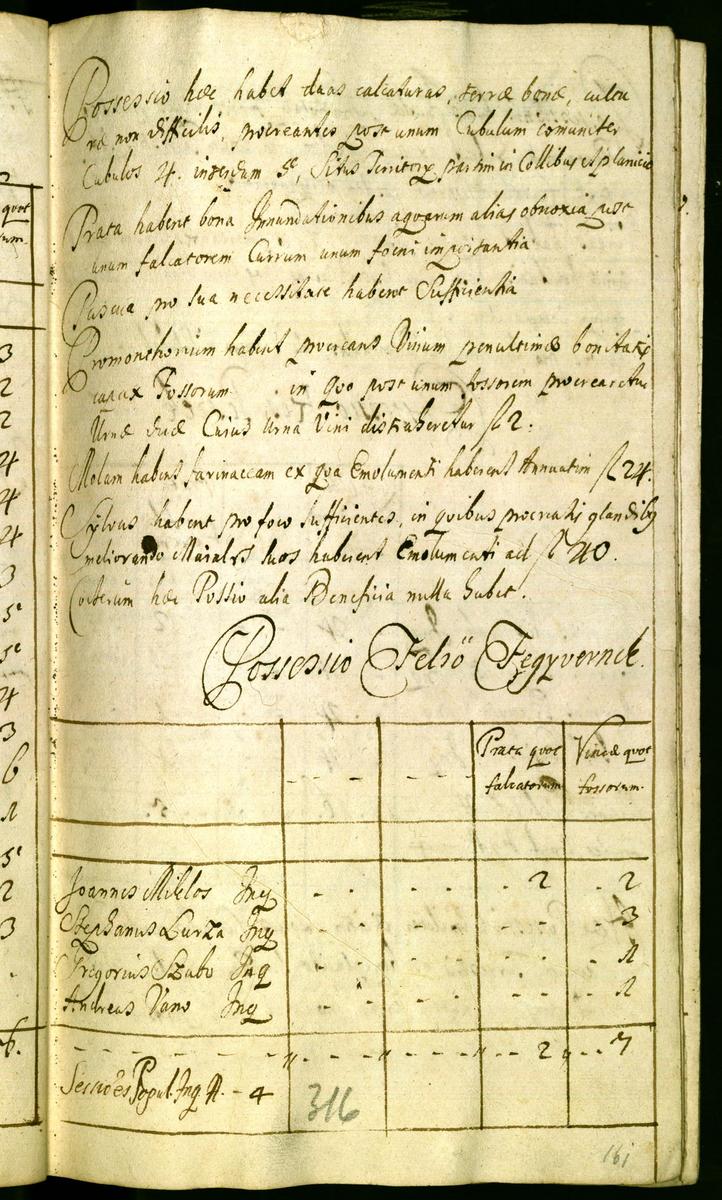 Possessio hæc habet duas calcaturas, terræ bonæ, cultu
ræ non difficilis, procreantes post unum Cubulum comuniter
Cubulos 4. interdum 5e, Situs Territorÿ partim in Collibus et planicie
Prata habent bona Innundationibus aquarum alias obnoxia post
unum falcatorem Currum unum foeni importantia
Pascua pro sua necessitate habent Sufficientia
Promonthorium habent procreans Vinum penultimæ bonitatis
capax Fossorum . in quo post unum fossorem procrearetur
Urnæ duæ Cuius Urna Vini distraheretur fl 2.
Molam habent farinaceam ex qua Emolumenti haberent Annuatim fl 24.
Sylvas habent pro foco sufficientes, in quibus procreatis glandibus
meliorando Maiales suos haberent Emolumenti ad fl 40.
Cæterum hæc Possio alia Beneficia nulla habet.
Possessio Felsö Fegyvernek.
Prata quot Vineæ quot
falcatorum fossorum.
Joannes Miklos Inq - - 2 - 2
Stephanus Lurza Inq - - - 3
Gregorius Szabo Inq - - - 1
Andreas Vano Inq - - - 1
- - - - - " - - - " - - - " - - 2 " - - 7
Sessioes Popul. Inq N. - 4
316
161
quot
3
2
2
4
4
4
3
5e
5e
4
3
6
1
5e
2
3
6.